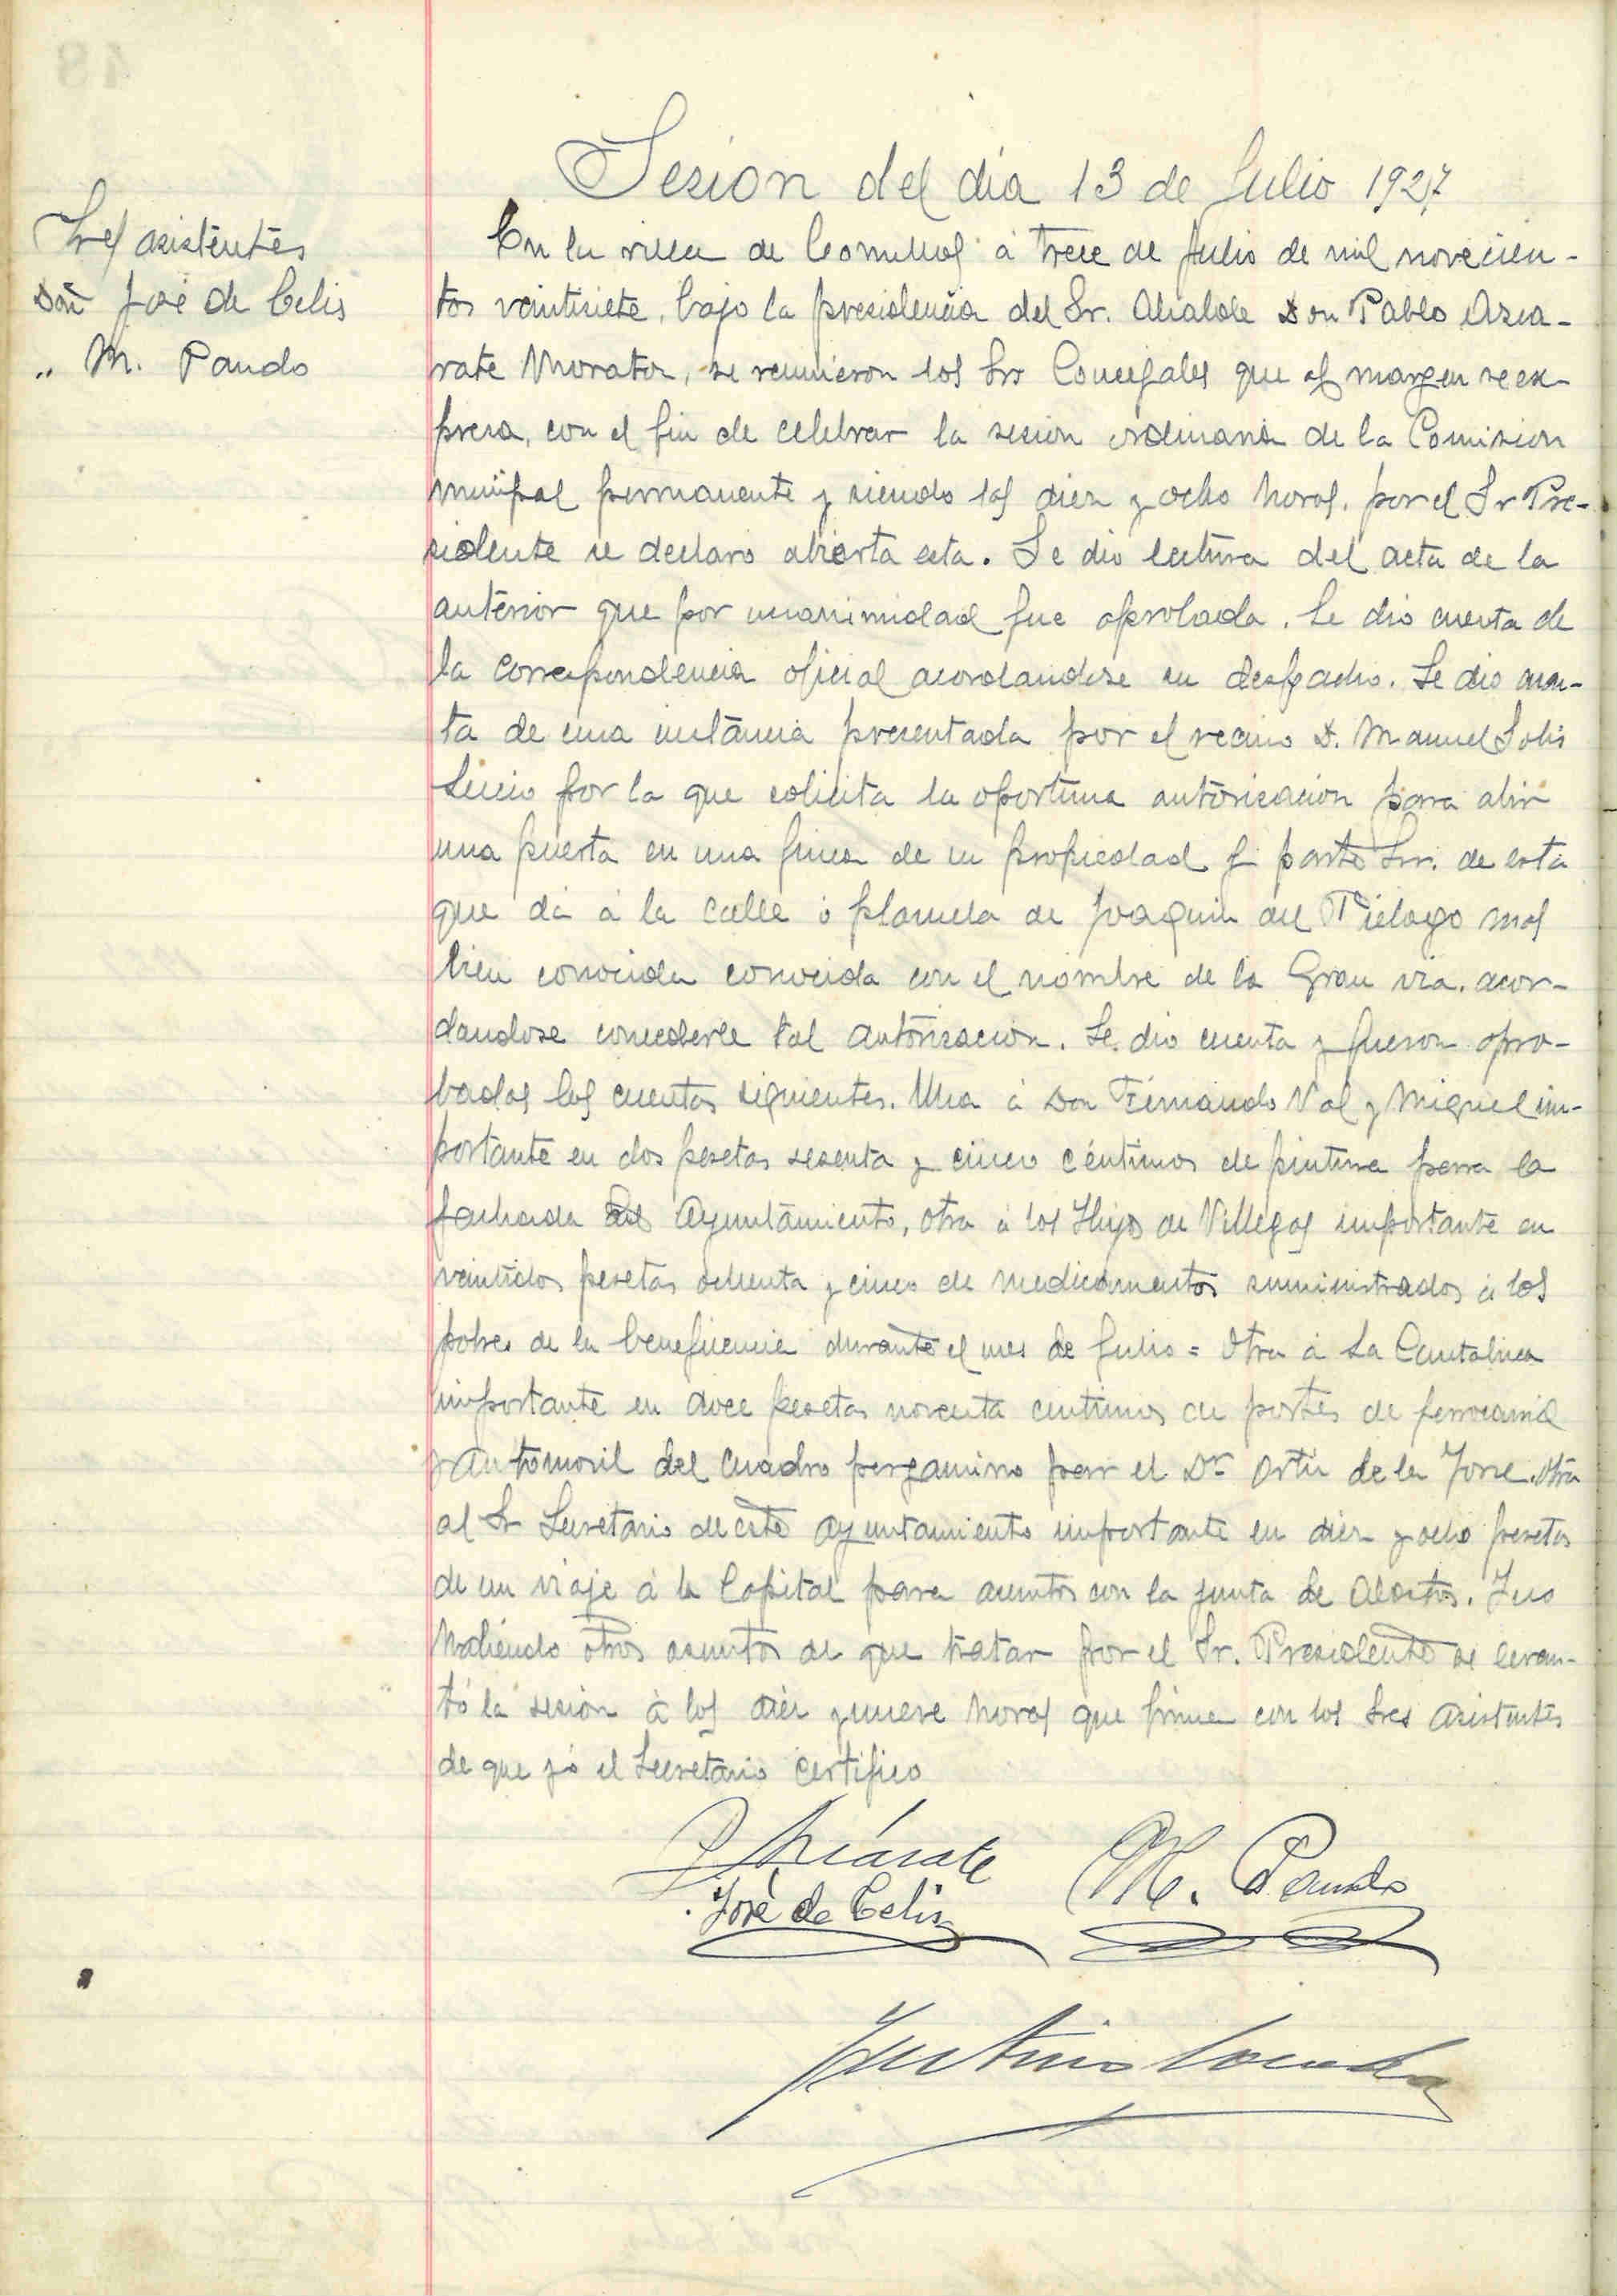 Sesion del dia 13 de Julio 1927
Sres asistentes
Don José de Celis
„ M. Pando
En la villa de Comillas á trece de Julio de mil novecien-
tos veintisiete, bajo la presidencia del Sr. Alcalde Don Pablo Azca-
rate Morator, se reunieron los Srs Concejales que al margen se ex-
presa, con el fin de celebrar la sesion ordinaria de la Comision
munipal permanente y siendo las diez y ocho horas, por el Sr Pre-
sidente se declaro abierta esta. Se dio lectura del acta de la
anterior que por unanimidad fue aprobada. Se dio cuenta de
la correspondencia oficial acordandose su despacho. Se dio cuen-
ta de una instancia presentada por el vecino D. Manuel Solis
por la que solicita la oportuna autorización para abrir
una puerta en una finca de su propiedad y parte Sur. de esta
que dá á la calle ó plazuela de Joaquin del Piélago mas
bien conocida conocida con el nombre de la Gran via. acor-
dandose concederle tal autorizacion. Se dio cuenta y fueron apro-
badas las cuentas siguientes. Una á Don Fernando Val y Miguel im-
portante en dos pesetas sesenta y cinco céntimos de pintura para la
fachada del Ayuntamiento, otra á los Hijos de Villegas importante en
veintidos pesetas ochenta y cinco de medicamentos suministrados á los
pobres de la beneficencia durante el mes de Julio = Otra á La Cantabrica
importante en doce pesetas noventa centimos de portes de ferrocarril
y automovil del cuadro pergamino para el Dr Ortiz de la Torre. Otra
al Sr Secretario de este ayuntamiento importante en diez y ocho pesetas
de un viaje á la Capital para asuntos con la junta de Abastos. Y no
habiendo otros asuntos de que tratar por el Sr. Presidente se levan-
tó la sesión á las diez y nueve horas que firma con los Sres asistentes
de que yó el Secretario certifico
P Azcárate
M. Pando
José de Celis